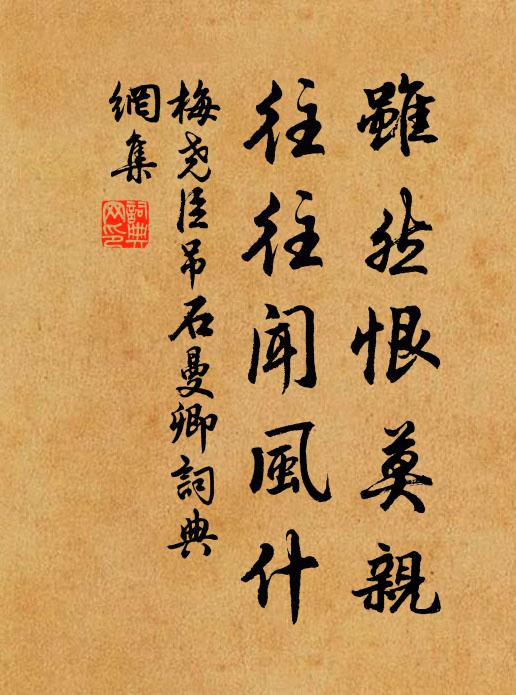 雖然恨莫親
往往聞風什
梅尧臣吊石曼卿詞典
網集
詞典网印